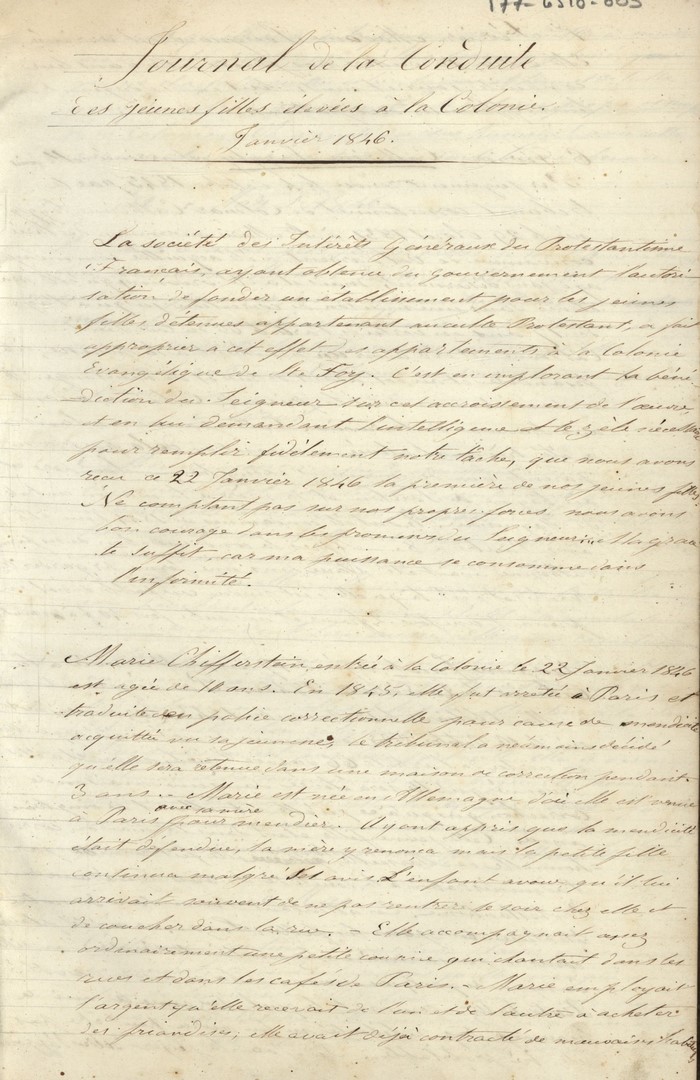 177-6510-003
Journal de la Conduite
des jeunes filles élevées à la Colonie.
Janvier 1846.
La société des Intérêts Généraux du Protestantisme
Français, ayant obtenu du gouvernement l'autori-
sation de fonder un établissement pour les jeunes
filles détenues appartenant au culte Protestant, a fait
approprier à cet effet des appartements à la Colonie
Evangélique de Ste Foy. C'est en implorant la béné
diction du Seigneur sur cet accroissement de l'œuvre
et en lui demandant l'intelligence et le zèle nécessaire
pour remplir fidèlement notre tâche, que nous avons
reçu ce 22 Janvier 1846 la première de nos jeunes filles.
Ne comptant pas sur nos propres forces nous avons
bon courage dans les promesses du Seigneur: Ma grace
te suffit, car ma puissance se consomme dans
l'infirmité.
Marie Chifferstein, entrée à la Colonie le 22 Janvier 1846
est agée de 10 ans. En 1845, elle fut arretée à Paris et
traduite en police correctionnelle pour cause de mendicité
acquittée vu sa jeunesse, le tribunal a néamoins décidé
qu'elle sera retenue dans une maison de correction pendant
3 ans. - Marie est née en Allemagne d'où elle est venue
à Paris avec sa mère pour mendier. Ayant appris que la mendicité
était défendue, la mère y renonça mais la petite fille
continua malgré ses avis. L'enfant avoue qu'il lui
arrivait souvent de ne pas rentrer le soir chez elle et
de coucher dans la rue. - Elle accompagnait assez
ordinairement une petite cousine qui chantait dans les
rues et dans les cafés de Paris. - Marie employait
l'argent qu'elle recevait de l'un et de l'autre à acheter
des friandises; elle avait déjà contracté de mauvaises habitudes